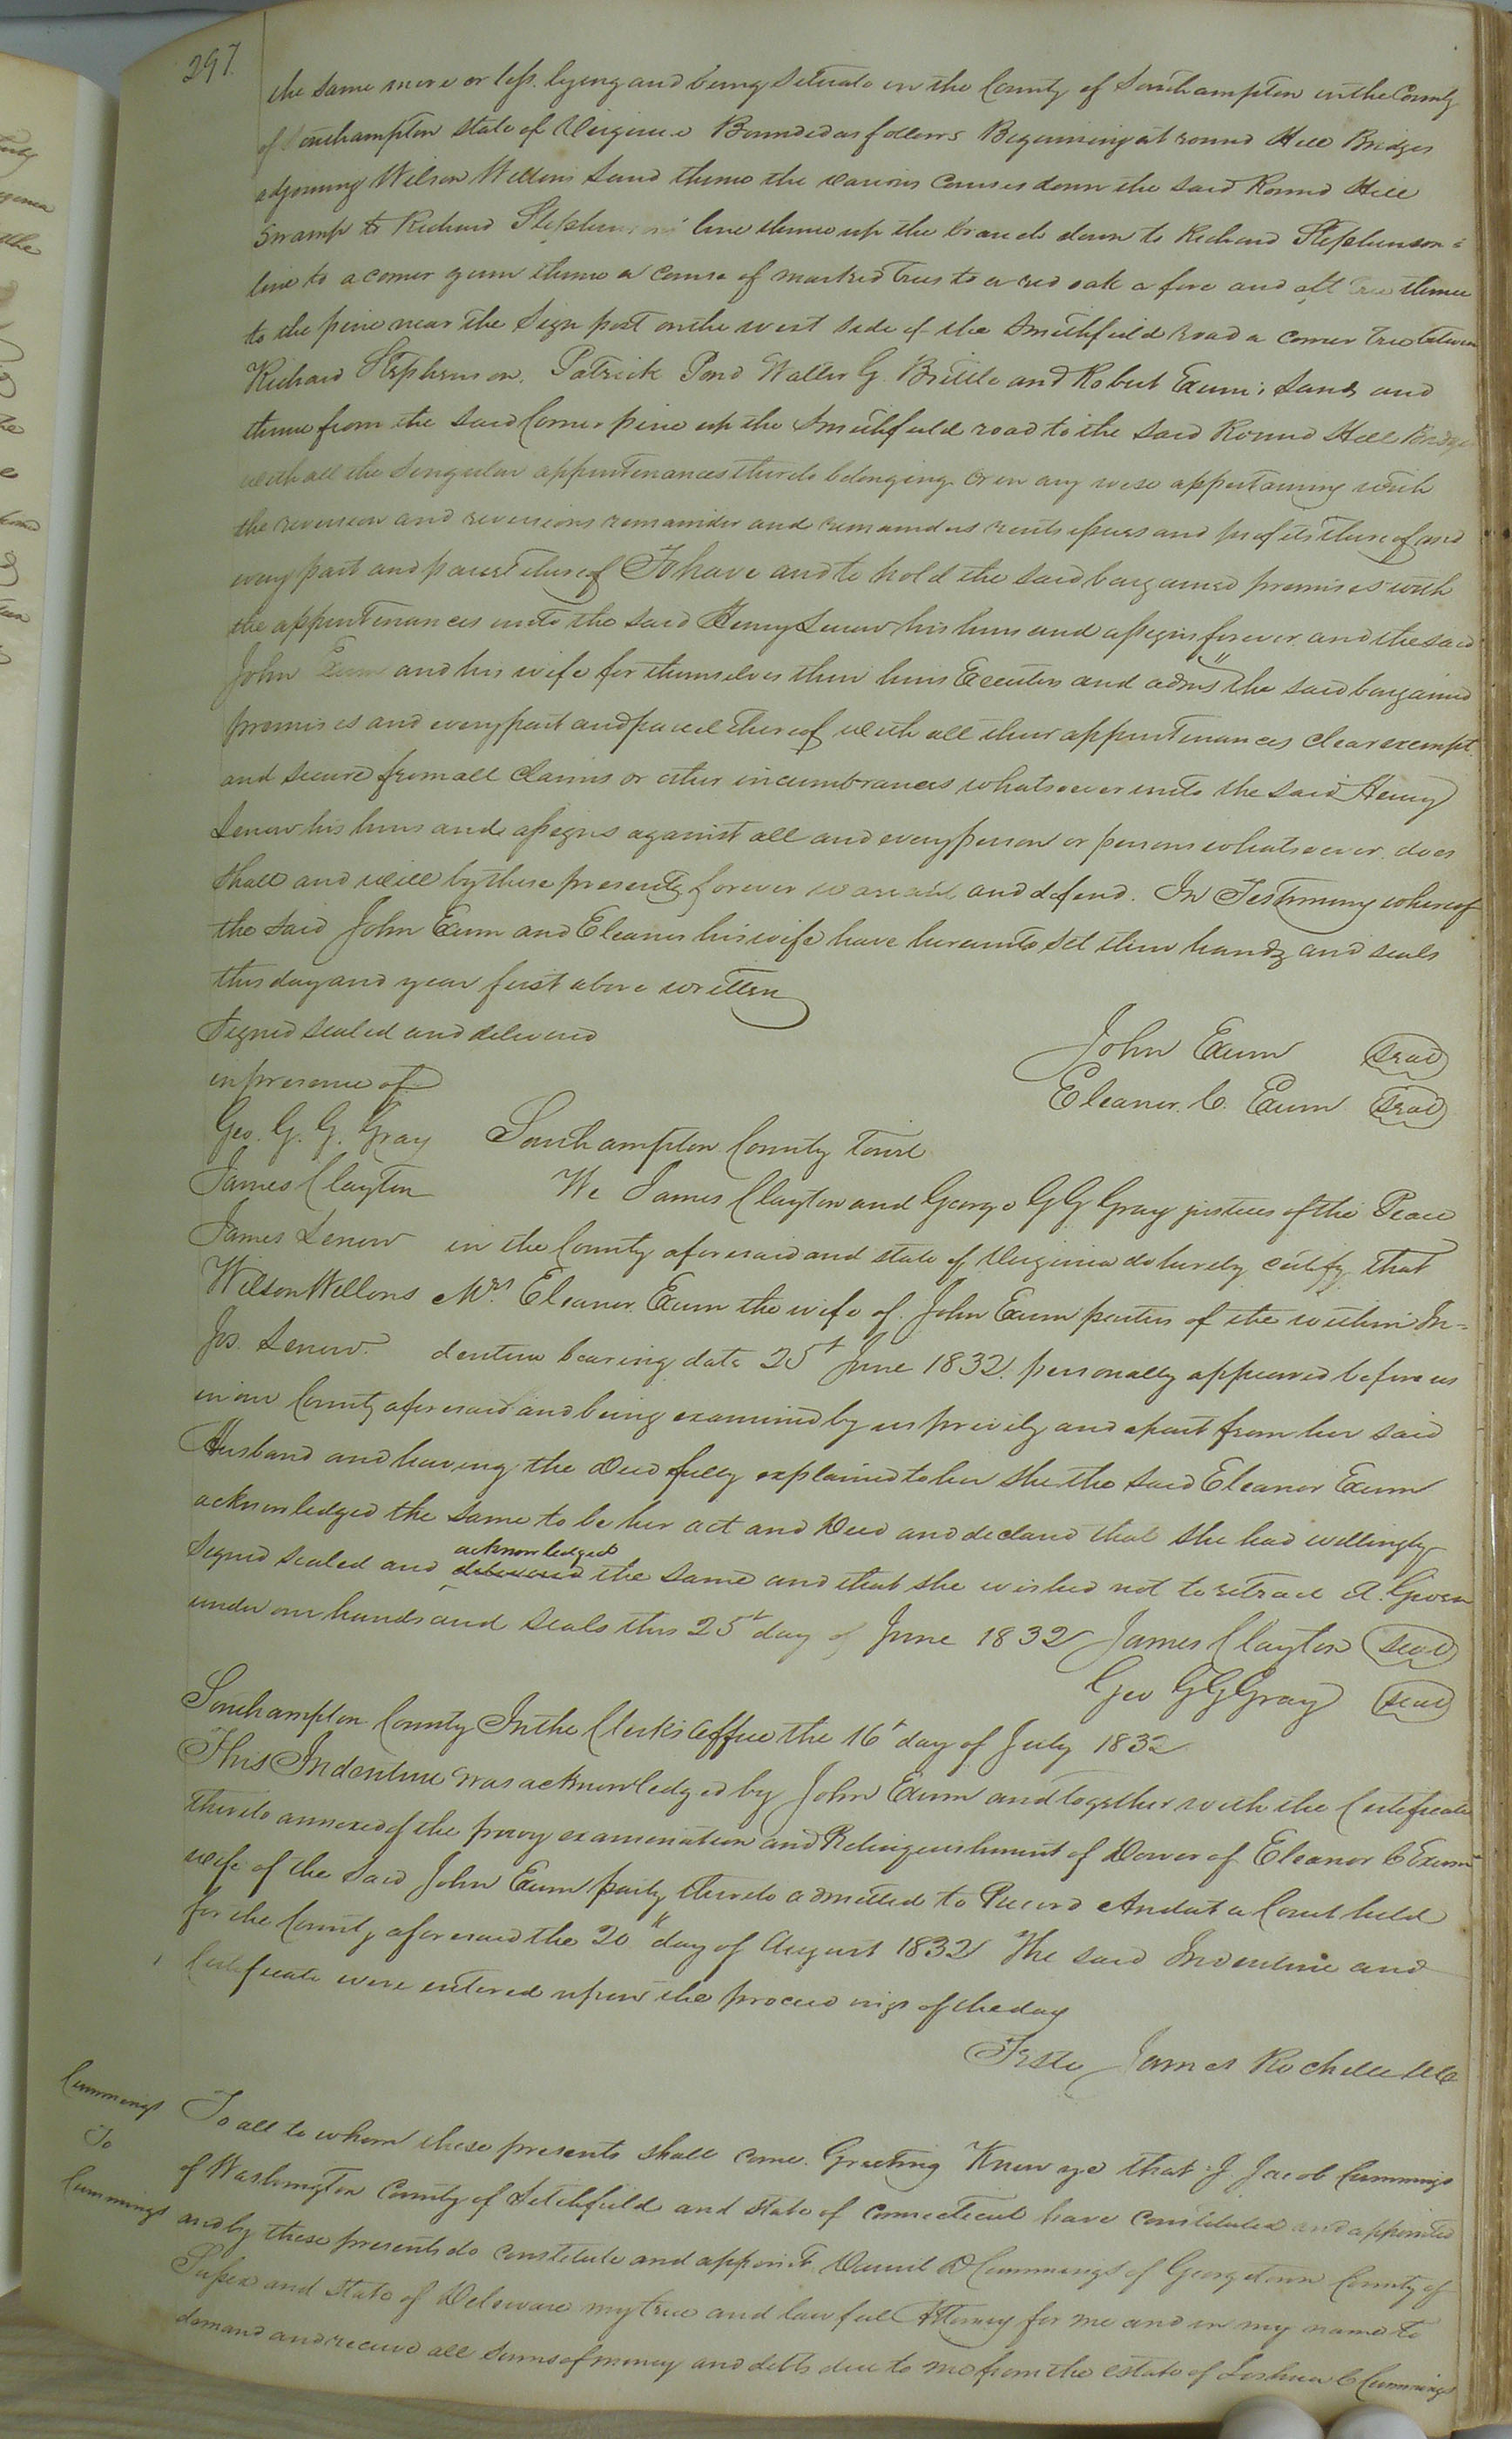 297.
the same more or less lying and being situate in the County of Southampton in the County
of Southampton state of Virginia Bounded as follows Beginning at round Hill Bridges
adjoining Wilson Wellons Land thence the various courses down the said Round Hill
Swamp to Richard Stephenson's line thence up the branch down to Richard Stephenson's
line to a corner gum thence a course of marked trees to a red oak a fore and aft tree thence
to the pine near the Sign post on the west side of the Smithfield road a corner tree between
Richard Stephenson, Patrick Pond Walter G. Brittle and Robert Exum's Lands and
thence from the said Corner pine up the Smithfield road to the said Round Hill Bridges
with all the singular appurtenances thereto belonging or in any wise appertaining with
the reversion and reversions remainder and remainders rents issues and profits thereof and
every part and parcel thereof To have and to hold the said bargained premises with
the appurtenances unto the said Henry Lenow his heirs and assigns forever and the said
John Exum and his wife for themselves their heirs Executors and adms the said bargained
premises and every part and parcel thereof with all their appurtenances clear exempt
and secure from all claims or other incumbrances whatsoever unto the said Henry
Lenow his heirs and assigns against all and every person or persons whatsoever does
shall and will by these presents forever warrant and defend. In Testimony whereof
the said John Exum and Eleanor his wife have hereunto set their hands and seals
this day and year first above written
Signed sealed and delivered
in presence of
John Exum seal
Eleanor C. Exum seal
Geo. G. G. Gray
James Clayton
James Lenow
Wilson Wellons
Jos. Lenow.
Southampton County Towit
We James Clayton and George G G Gray justices of the Peace
in the County aforesaid and state of Virginia do hereby certify that
Mrs. Eleanor Exum the wife of John Exum parties of the within In-
denture bearing date 25t June 1832. personally appeared before us
in our County aforesaid and being examined by us privily and apart from her said
Husband and having the Deed fully explained to her she the said Eleanor Exum
acknowledged the same to be her act and Deed and declared that she had willingly
signed sealed and delivered acknowledged the same and that she wished not to retract it. Given
under our hands and seals this 25t day of June 1832 James Clayton seal
Geo G G Gray seal
Southampton County In the Clerk's Office the 16t day of July 1832
This Indenture was acknowledged by John Exum and together with the Certificate
thereto annexed of the privy examination and Relinquishment of Dower of Eleanor C Exum
wife of the said John Exum party thereto admitted to Record And at a Court held
for the County aforesaid the 20th day of August 1832 The said Indenture and
Certificate were entered upon the proceedings of the day
Teste James Rochelle
Cummings
To
Cummings
To all to whom these presents shall come. Greeting Know ye that I Jacob Cummings
of Washington County of Litchfield and state of Connecticut have constituted and appointed
and by these presents do constitute and appoint Daniel D Cummings of Georgetown County of
Sussex and State of Delaware my true and lawful Attorney for me and in my name to
demand and receive all sums of money and debts due to me from the estate of Joshua C Cummings